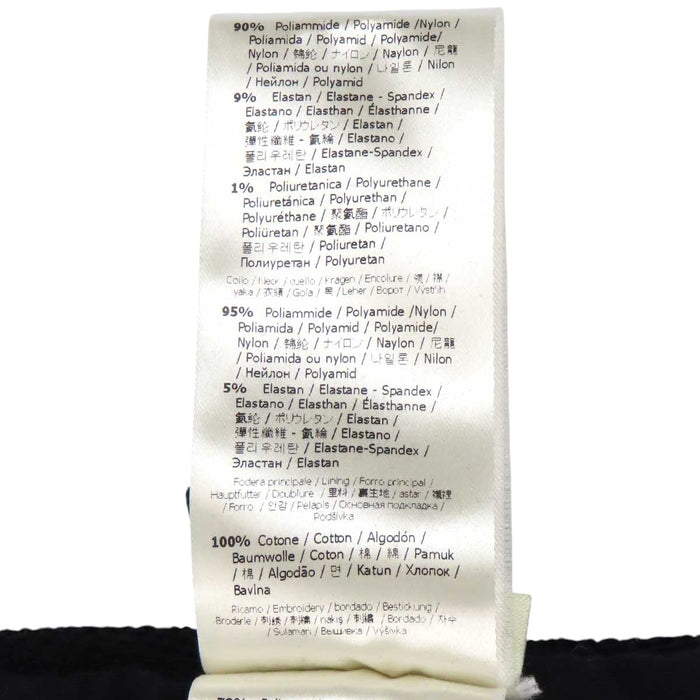 90% Poliammide / Polyamide /Nylon /
Poliamida / Polyamid / Polyamide/
Nylon / 锦纶 / ナイロン / Naylon / 尼龍
/ Poliamida ou nylon / 나일론 / Nilon
/ Нейлон / Polyamid
9% Elastan / Elastane - Spandex /
Elastano / Elasthan / Élasthanne /
氨纶 / ポリウレタン / Elastan /
彈性纖維 - 氨綸 / Elastano /
폴리우레탄 / Elastane-Spandex /
Эластан / Elastan
1% Poliuretanica / Polyurethane /
Poliuretánica / Polyurethan /
Polyuréthane / 聚氨酯 / ポリウレタン /
Poliüretan / 聚氨酯 / Poliuretano /
폴리우레탄 / Poliuretan /
Полиуретан / Polyuretan
Collo / Neck / cuello / Kragen / Encolure / 领 / 襟 /
yaka / 衣領 / Gola / 목 / Leher / Ворот / Výstřih
95% Poliammide / Polyamide /Nylon /
Poliamida / Polyamid / Polyamide/
Nylon / 锦纶 / ナイロン / Naylon / 尼龍
/ Poliamida ou nylon / 나일론 / Nilon
/ Нейлон / Polyamid
5% Elastan / Elastane - Spandex /
Elastano / Elasthan / Élasthanne /
氨纶 / ポリウレタン / Elastan /
彈性纖維 - 氨綸 / Elastano /
폴리우레탄 / Elastane-Spandex /
Эластан / Elastan
Fodera principale / Lining / Forro principal /
Hauptfutter / Doublure / 里料 / 裏生地 / astar / 襯裡
/ Forro / 안감 / Pelapis / Основная подкладка /
Podšívka
100% Cotone / Cotton / Algodón /
Baumwolle / Coton / 棉 / 綿 / Pamuk
/ 棉 / Algodão / 면 / Katun / Хлопок /
Bavlna
Ricamo / Embroidery / bordado / Bestickung /
Broderie / 刺绣 / 刺繍 / nakış / 刺繡 / Bordado / 자수
/ Sulaman / Вышивка / Výšivka